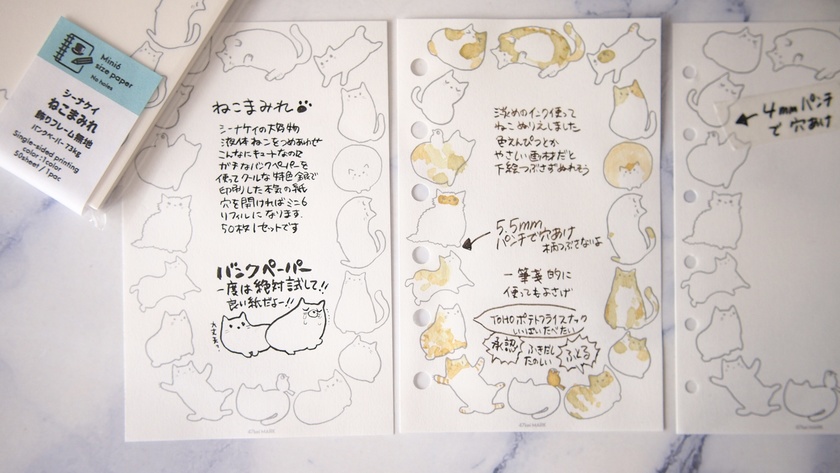 Mini6
size paper
No holes
シーナケイ
ねこまみれ
飾りフレーム無地
バンクペーパー 73kg
Single-sided printing
color : 1color
50sheet / 1pac
ねこまみれ
シーナケイの大好物
液体ねこをつめあわせ
こんなにキュートなのに
ガチなバンクペーパーを
使ってクールな特色銀で
印刷した本気の紙
穴を開ければミニ6
リフィルになります.
50枚1セットです
バンクペーパー
一度は絶対試して!!
良い紙だよー!!
淡めのインク使って
ねこぬりえしました
色えんぴつとか
やさしい画材だと
下絵つぶさずぬれそう
5.5mm
パンチで穴あけ
柄つぶさないよ
一筆箋的に
使ってもよさげ
TOHOポテトフライスナック
いっぱいたべたい
承認
ふきだし
たのしい
ふとる
4mmパンチ
で穴あけ